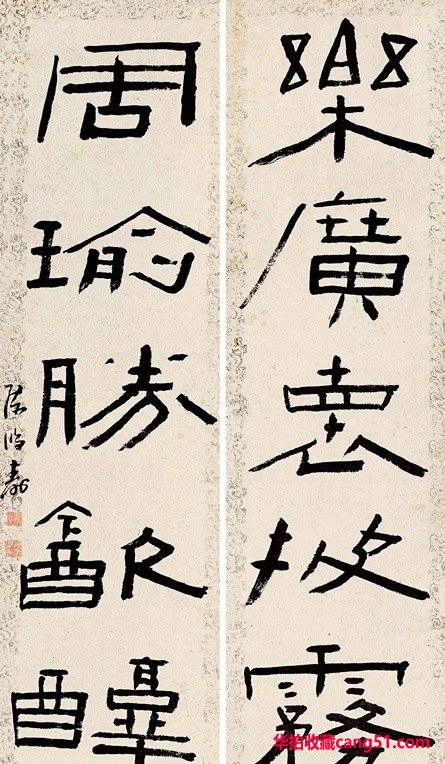 樂廣袁披霧
周瑜勝㱃醇
陳鴻壽
华拍收藏cang51.com